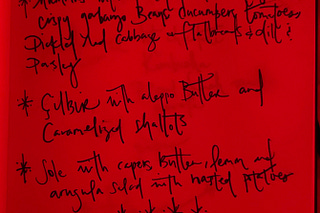 crispy garbanzo Beans cucumbers, tomatoes
Pickled Red Cabbage flatbreads & dill &
Parsley
* Çilbir with aleppo Butter and
Caramelized shallots
* Sole with capers, Butter, lemon and
arugula salad with roasted potatoes